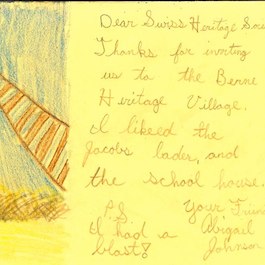 Dear Swiss Heritage Soci
Thanks for inviting
us to the Berne
Heritage Village.
I likeed the
Jacobs lader, and
the school house.
P.S. Your Frien
I had a Abigail
blast! Johnson